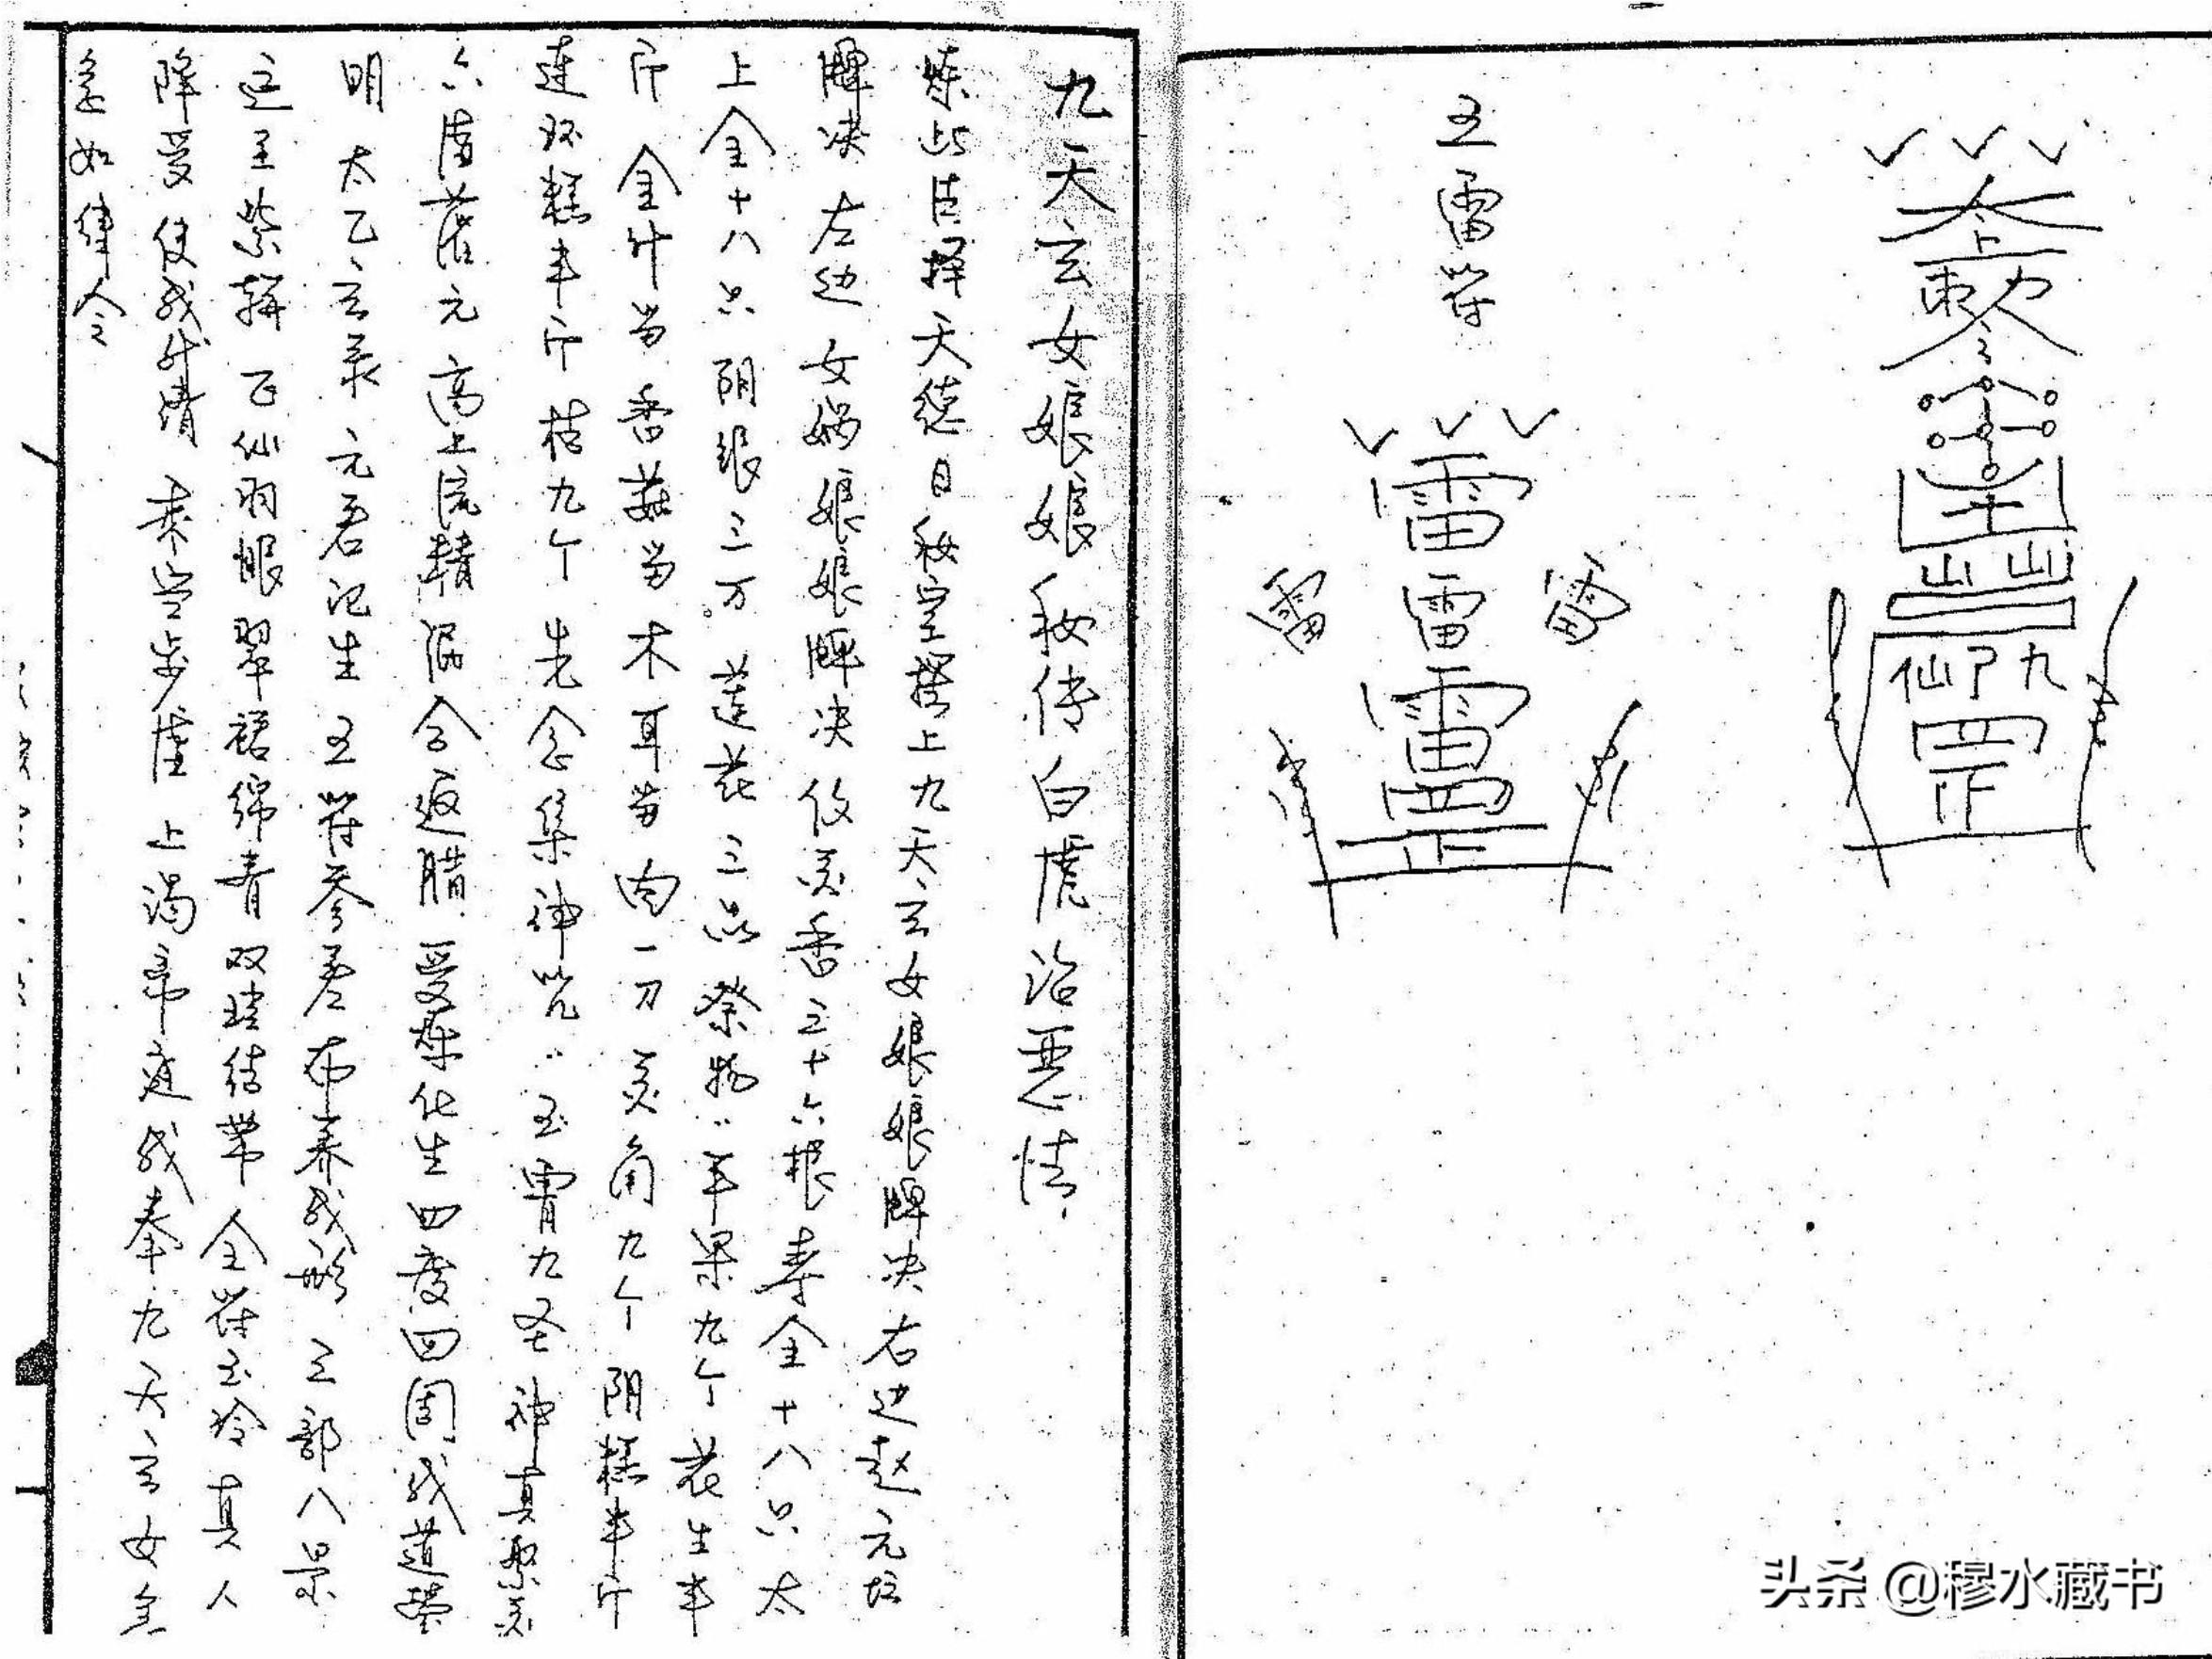 五雷符
雷
雷 雷 雷
雷
罡
敕令
山山
九 仙
罡
九天玄女娘娘秘传白虎治恶情
炼此法择天德日秘室搭上九天玄女娘娘牌决右边赵元坛
牌决左边女娲娘娘牌决伩灵香三十六根寿金十八只太
上金十八只阴银三万莲花三品祭物:苹果九个花生半
斤金针菇香菇菇木耳菇肉一刀灵角九个阴糕半斤
连环糕半斤桔九个先念集神咒:玉霄九圣神真聚灵
六 落元高上流精混合返腊受炼化生四度四周成道
明太乙玄录元君记生五符参差布奏成形三部八景
迎至紫 飞仙羽 翠裙绵青双珪结带金符玉冷真人
降受使我 清乘空步虚上谒帝庭我奉九天玄女急
急如律令
头条 @穆水藏书